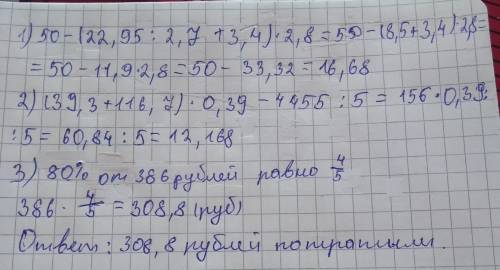 1) 50-(22,95 : 2,7 +3,4)·2,8=50-(8,5+3,4)·2,8=
=50-11,9·2,8=50-33,32=16,68
2) (39,3+116,7)·0,39-4455:5=156·0,39:
:5=60,84:5=12,168
3) 80% от 386 рублей равно 4/5
386 · 4/5 = 308,8 (руб)
Ответ: 308,8 рублей потратили.